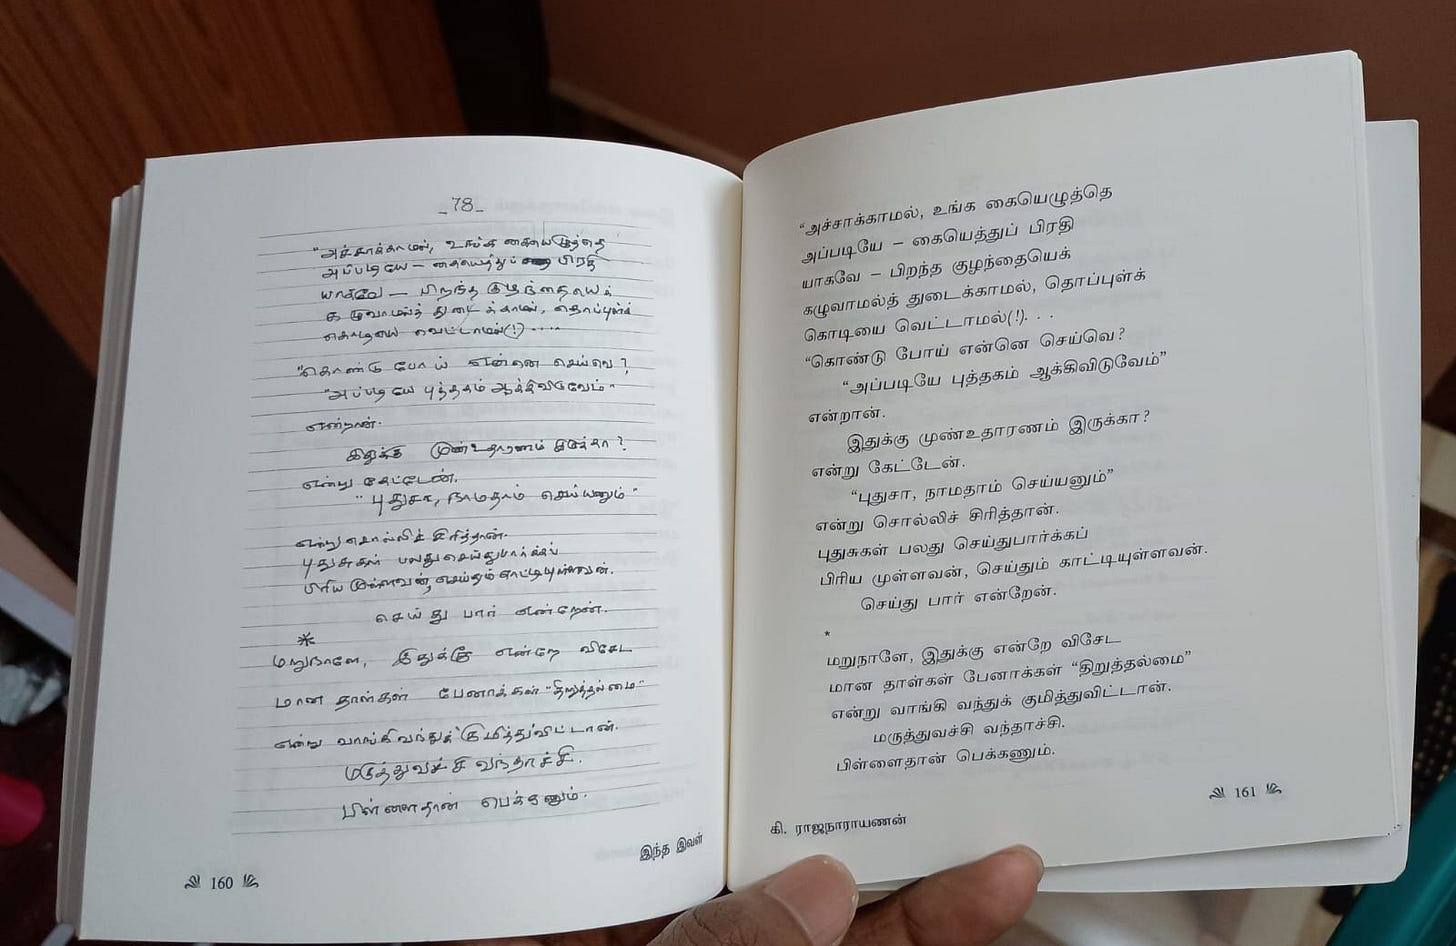 _78_
"அச்சாக்காமல், உங்க கையெழுத்தெ
அப்படியே – கையெத்துப் பிரதி
யாகவே – பிறந்த குழந்தையெக்
கழுவாமல்த் துடைக்காமல், தொப்புள்க்
கொடியை வெட்டாமல்(!)....
"கொண்டு போய் என்னெ செய்வெ?
"அப்படியே புத்தகம் ஆக்கிவிடுவேம்"
என்றான்.
இதுக்கு முண்உதாரணம் இருக்கா?
என்று கேட்டேன்.
"புதுசா, நாமதாம் செய்யணும்"
என்று சொல்லிச் சிரித்தான்.
புதுசுகள் பலது செய்துபார்க்கப்
பிரிய முள்ளவன், செய்தும் காட்டியுள்ளவன்.
செய்து பார் என்றேன்.
*
மறுநாளே, இதுக்கு என்றே விசேட
மான தாள்கள் பேனாக்கள் "திறுத்தல்மை"
என்று வாங்கிவந்துக் குமித்துவிட்டான்.
மருத்துவச்சி வந்தாச்சி.
பிள்ளைதான் பெக்கணும்.
இந்த இவள்
160
"அச்சாக்காமல், உங்க கையெழுத்தெ
அப்படியே – கையெத்துப் பிரதி
யாகவே – பிறந்த குழந்தையெக்
கழுவாமல்த் துடைக்காமல், தொப்புள்க்
கொடியை வெட்டாமல்(!). . .
"கொண்டு போய் என்னெ செய்வெ?
"அப்படியே புத்தகம் ஆக்கிவிடுவேம்"
என்றான்.
இதுக்கு முண்உதாரணம் இருக்கா?
என்று கேட்டேன்.
"புதுசா, நாமதாம் செய்யனும்"
என்று சொல்லிச் சிரித்தான்.
புதுசுகள் பலது செய்துபார்க்கப்
பிரிய முள்ளவன், செய்தும் காட்டியுள்ளவன்.
செய்து பார் என்றேன்.
*
மறுநாளே, இதுக்கு என்றே விசேட
மான தாள்கள் பேனாக்கள் "திறுத்தல்மை"
என்று வாங்கி வந்துக் குமித்துவிட்டான்.
மருத்துவச்சி வந்தாச்சி.
பிள்ளைதான் பெக்கணும்.
161
கி. ராஜநாராயணன்